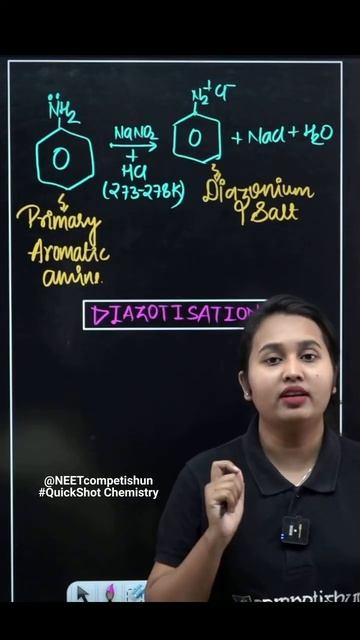 N̈H₂
NaNO₂
+
HCl
(273-278K)
N₂⁺Cl⁻
+ NaCl + H₂O
Primary
Aromatic
amine.
Diazonium
Salt
DIAZOTISATION
@NEETcompetishun
#QuickShot Chemistry
competishun